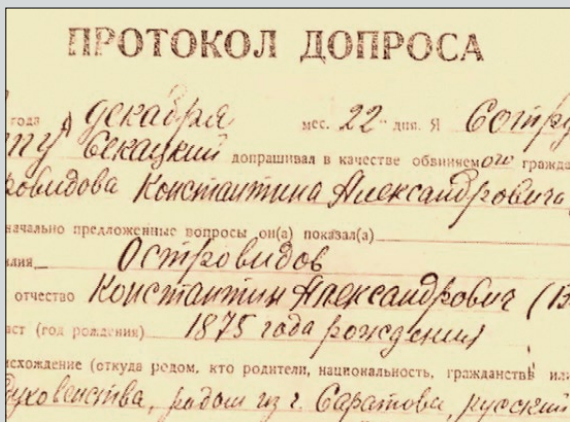 ПРОТОКОЛ ДОПРОСА
года декабря мес. 22 дня. Я Сотру
Секацкий допрашивал в качестве обвиняемого гражда
ровидова Константина Александровича
начально предложенные вопросы он(а) показал(а)
илия Островидов
отчество Константин Александрович (
аст (год рождения) 1875 года рождения
исхождение (откуда родом, кто родители, национальность, гражданств или
духовенства, родом из г. Саратова, русский